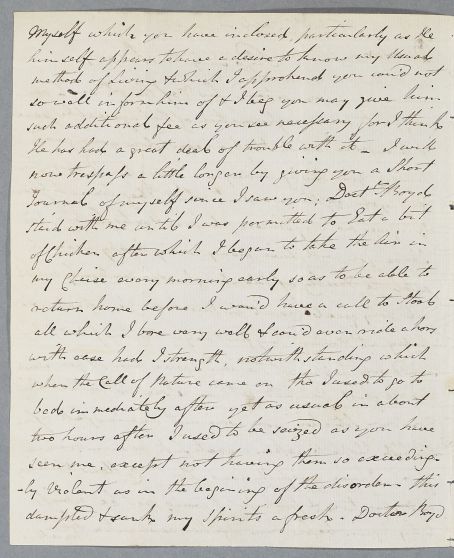 Myself which you have inclosed particularly as He
himself appears to have a desire to know my Usual
method of Living & which I apprehend you cou'd not
so well inform him of & I beg you may give him
such additional fee as you see necessary for I think
He has had a great deal of trouble with it - I will
now trespass a little longer by giving you a Short
Journal of myself since I saw you; Doctr Boyd
staid with me until I was permitted to Eat a bit
of Chicken after which I began to take the Air in
my Chaise every morning early so as to be able to
return home before I wou'd have a call to Stool
all which I bore very well & cou'd even ride a hors
with ease had I strength, notwithstanding which
when the Call of Nature came on tho I used to go to
bed immediately after yet as usual in about
two hours after I used to be seized as you have
seen me, except not having them so exceeding-
-ly Violent as in the begining of the disorder - this
dampted & sunk my Spirits afresh - Doctor Boyd